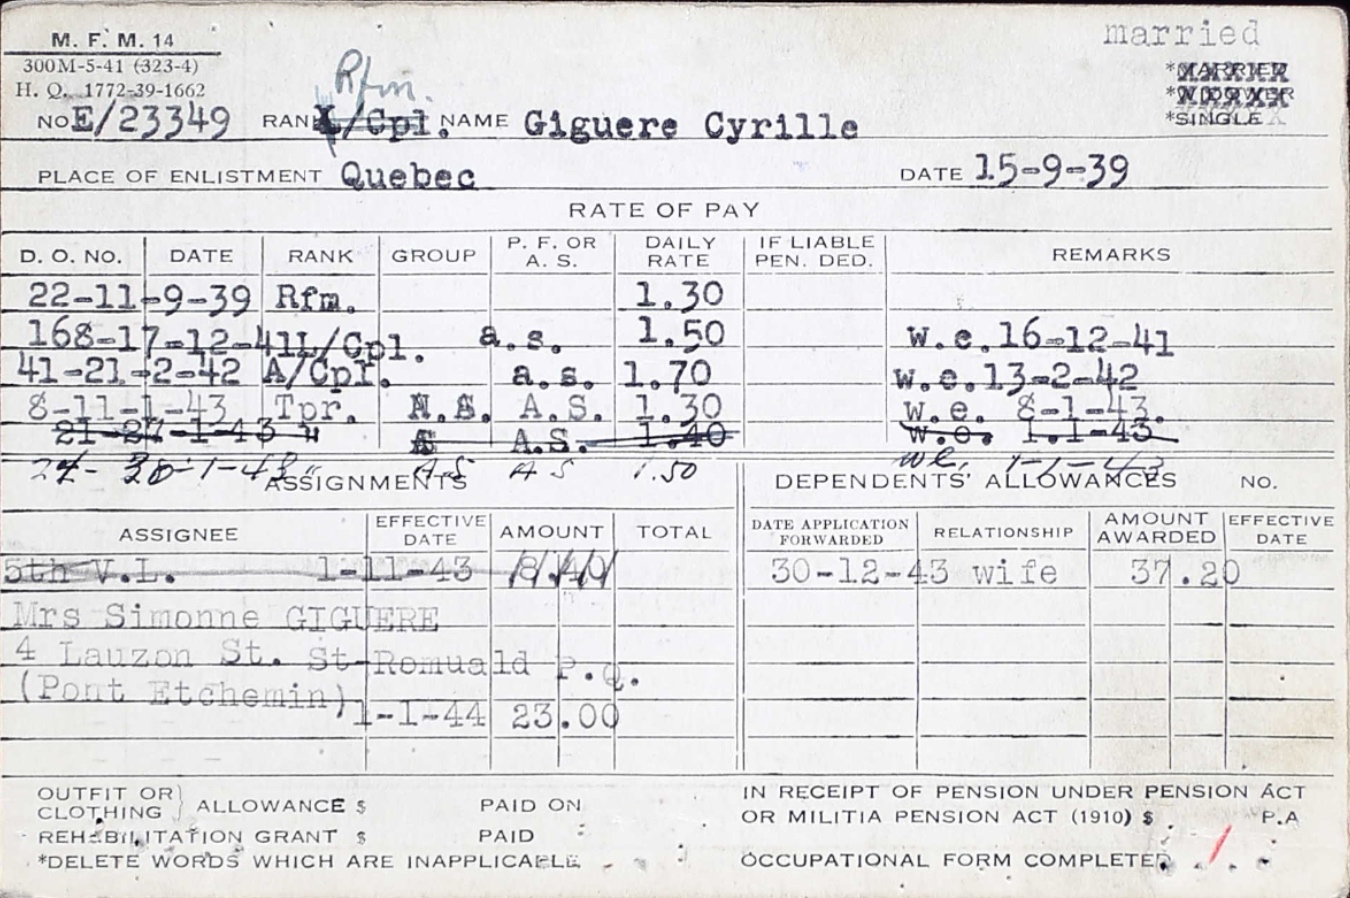 married
M. F. M. 14
300M-5-41 (323-4)
H. Q. 1772-39-1662
*MARRIED
*WIDOWER
*SINGLE
Rfm.
NO E/23349 RANK L/Cpl. NAME Giguere Cyrille
PLACE OF ENLISTMENT Quebec DATE 15-9-39
RATE OF PAY
D. O. NO. DATE RANK GROUP P. F. OR A. S. DAILY RATE IF LIABLE PEN. DED. REMARKS
22-11-9-39 Rfm. 1.30
168-17-12-41 L/Cpl. a.s. 1.50 w.e.16-12-41
41-21-2-42 A/Cpl. a.s. 1.70 w.e.13-2-42
8-11-1-43 Tpr. N.S. A.S. 1.30 w.e. 8-1-43.
21-27-1-43 " A.S. 1.40 w.e. 1.1-43
24-30-1-43 " A.S A S 1.50 we, 1-1-43
ASSIGNMENTS DEPENDENTS' ALLOWANCES NO.
ASSIGNEE EFFECTIVE DATE AMOUNT TOTAL DATE APPLICATION FORWARDED RELATIONSHIP AMOUNT AWARDED EFFECTIVE DATE
5th V.L. 1-11-43 8.40 30-12-43 wife 37.20
Mrs Simonne GIGUERE
4 Lauzon St. St-Romuald P.Q.
(Pont Etchemin) 1-1-44 23.00
OUTFIT OR CLOTHING } ALLOWANCE $ PAID ON
REHABILITATION GRANT $ PAID
*DELETE WORDS WHICH ARE INAPPLICABLE
IN RECEIPT OF PENSION UNDER PENSION ACT
OR MILITIA PENSION ACT (1910) $ P.A
OCCUPATIONAL FORM COMPLETED